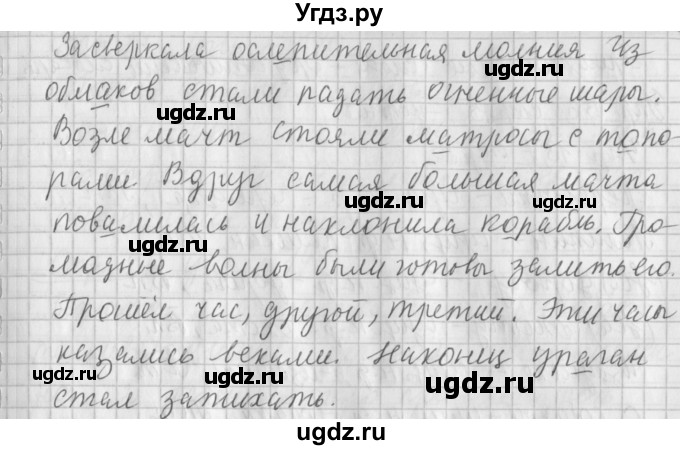 Угдз.ру
Засверкала ослепительная молния Из
облаков стали падать огненные шары.
Возле мачт стояли матросы с топо-
рами Вдруг самая большая мачта
повалилась и наклонила корабль. Гро-
мадные волны были готовы залить его.
Прошёл час, другой, третий. Эти часы
казались веками. Наконец ураган
стал затихать.
ugdz.ru
ugdz.ru
ugdz.ru
ugdz.ru
ugdz.ru
ugdz.ru
ugdz.ru
ugdz.ru
ugdz.ru
ugdz.ru
ugdz.ru
ugdz.ru
ugdz.ru